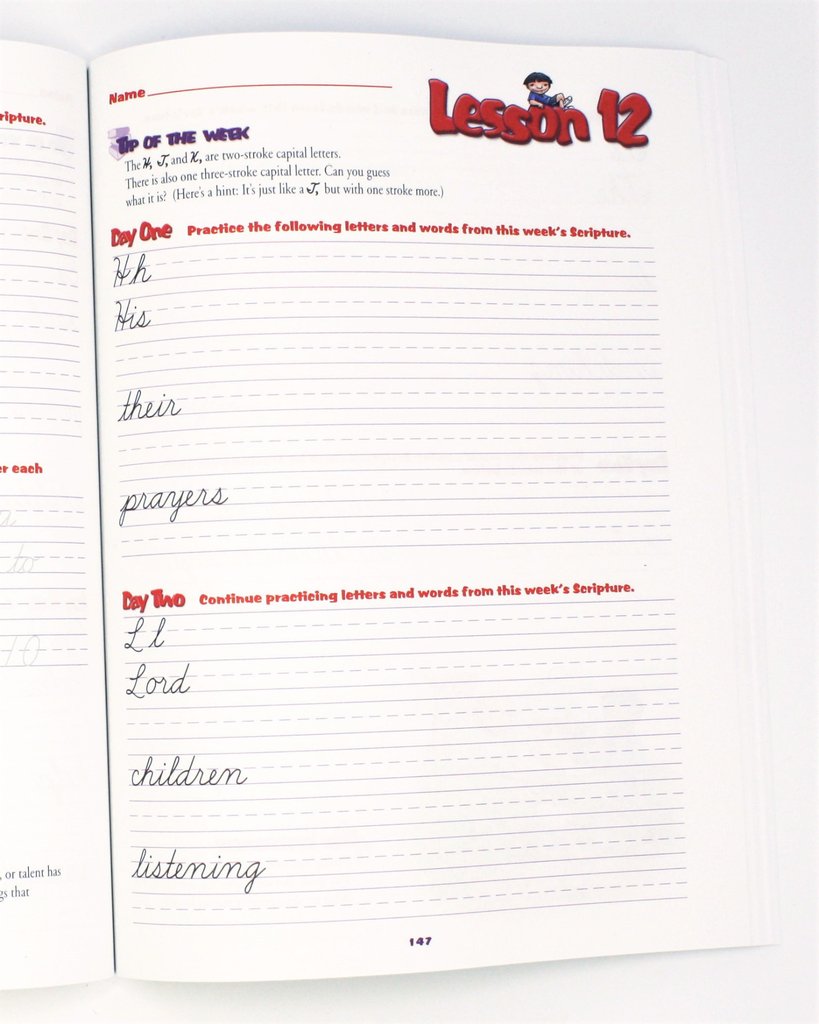 ripture.
er each
a
to
10
, or talent has
gs that
Name
Lesson 12
Tip of the Week
The H, T, and K, are two-stroke capital letters.
There is also one three-stroke capital letter. Can you guess
what it is? (Here's a hint: It's just like a T, but with one stroke more.)
Day One Practice the following letters and words from this week's Scripture.
Hh
His
their
prayers
Day Two Continue practicing letters and words from this week's Scripture.
Ll
Lord
children
listening
147